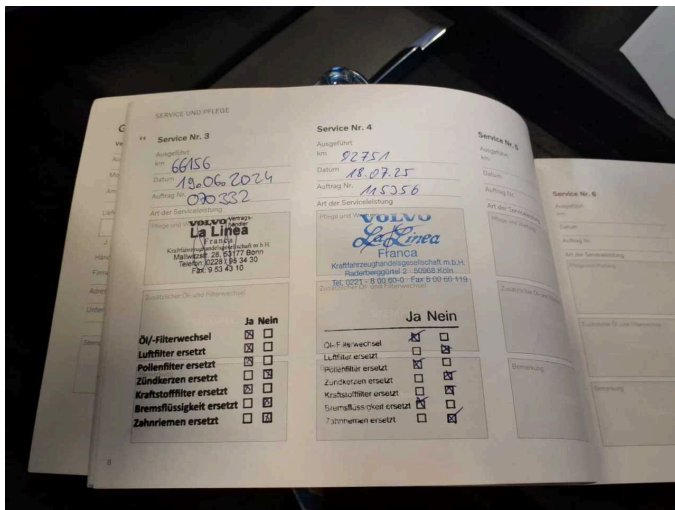 SERVICE UND PFLEGE
Service Nr. 3
Ausgeführt
km 66156
Datum 19.06.2024
Auftrag Nr. 070332
Art der Serviceleistung
Pflege und
VOLVO Vertragshändler
La Linea
Franca
Kraftfahrzeughandelsgesellschaft m.b.H.
Mallwitzstr. 28, 53177 Bonn
Telefon (0228) 95 34 30
Fax: 9 53 43 10
Zusätzlicher Öl- und Filterwechsel
Ja Nein
Öl/-Filterwechsel
Luftfilter ersetzt
Pollenfilter ersetzt
Zündkerzen ersetzt
Kraftstofffilter ersetzt
Bremsflüssigkeit ersetzt
Zahnriemen ersetzt
8
Service Nr. 4
Ausgeführt
km 92751
Datum 18.07.25
Auftrag Nr. 115356
Art der Serviceleistung
Pflege und
VOLVO
La Linea
Franca
Kraftfahrzeughandelsgesellschaft m.b.H.
Raderberggürtel 2 · 50968 Köln
Tel. 0221 - 8 00 60-0 · Fax 8 00 60 119
Zusätzlicher Öl- und Filterwechsel
Ja Nein
Öl-Filterwechsel
Luftfilter ersetzt
Pollenfilter ersetzt
Zündkerzen ersetzt
Kraftstofffilter ersetzt
Bremsflüssigkeit ersetzt
Zahnriemen ersetzt
Service Nr. 5
Ausgeführt
km
Datum
Auftrag Nr.
Art der Serviceleistung
Pflege und Wartung
Zusätzlicher Öl- und Filterwechsel
Bemerkung
Service Nr. 6
Ausgeführt
km
Datum
Auftrag Nr.
Art der Serviceleistung
Pflege und Wartung
Zusätzlicher Öl- und Filterwechsel
Bemerkung